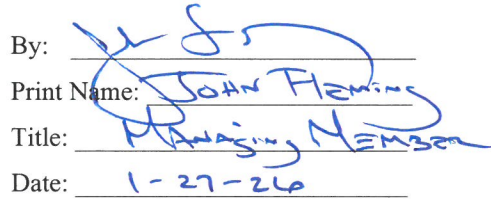 By:
Print Name: JOHN FLEMING
Title: MANAGING MEMBER
Date: 1-27-26